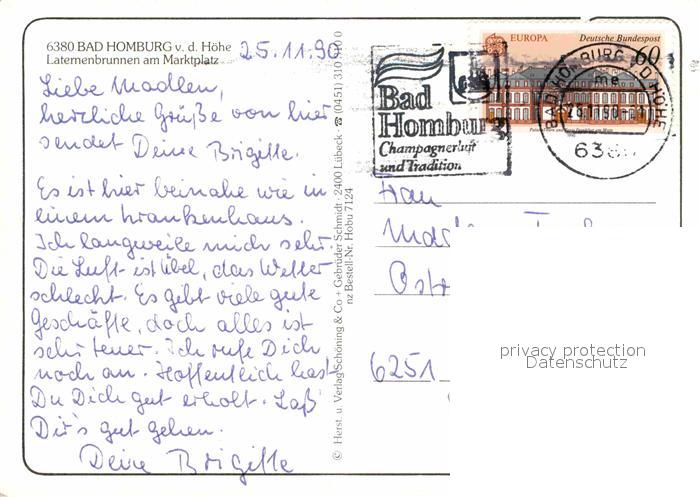 6380 BAD HOMBURG v. d. Höhe
Laternenbrunnen am Marktplatz
25.11.90
Liebe Madlen,
herzliche Grüße von hier
sendet Deine Brigitte.
Es ist hier beinahe wie in
einem Krankenhaus.
Ich langweile mich sehr.
Die Luft ist übel, das Wetter
schlecht. Es gibt viele gute
Geschäfte, doch alles ist
sehr teuer. Ich rufe Dich
noch an. Hoffentlich hast
Du Dich gut erholt. Laß
Dir's gut gehen.
Deine Brigitte
© Herst. u. Verlag Schöning & Co + Gebrüder Schmidt · 2400 Lübeck · ☎ (0451) 310
nz Bestell-Nr. Hobu 7124
EUROPA
Deutsche Bundespost
60
Bad
Homburg
Champagnerluft
und Tradition
BAD HOMBURG V D HÖHE
me
638
Frau
6251
privacy protection
Datenschutz